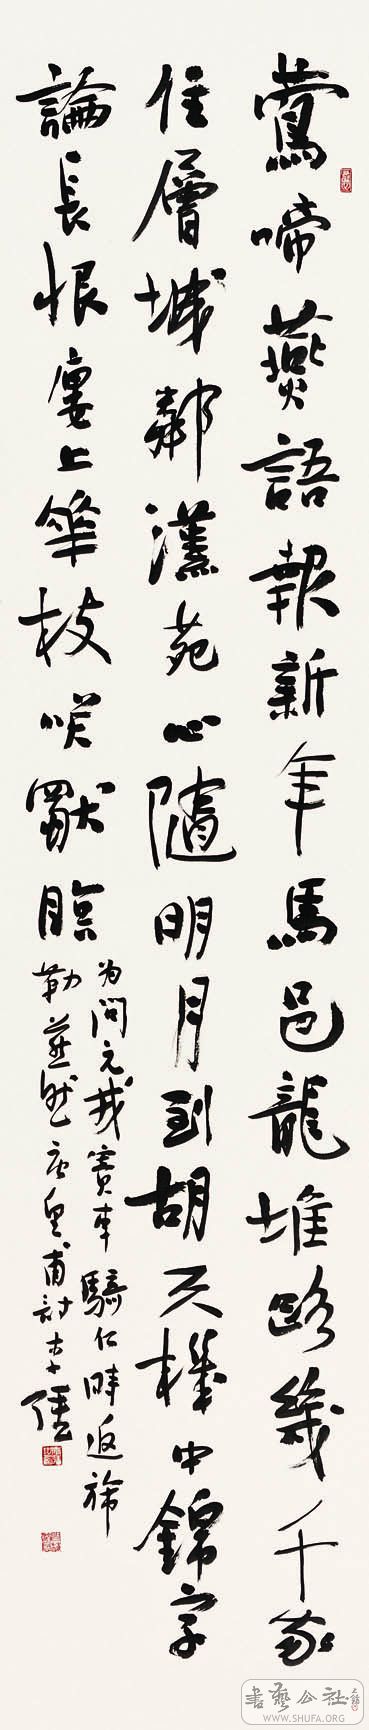 鶯啼燕語報新年馬邑龍堆路幾千家
住層城鄰漢苑心隨明月到胡天機中錦字
論長恨廔上華枝咲獨眠
为問元戎竇車騎何時返旆
勒燕然唐皇甫詩
書藝公社
WWW.SHUFA.ORG